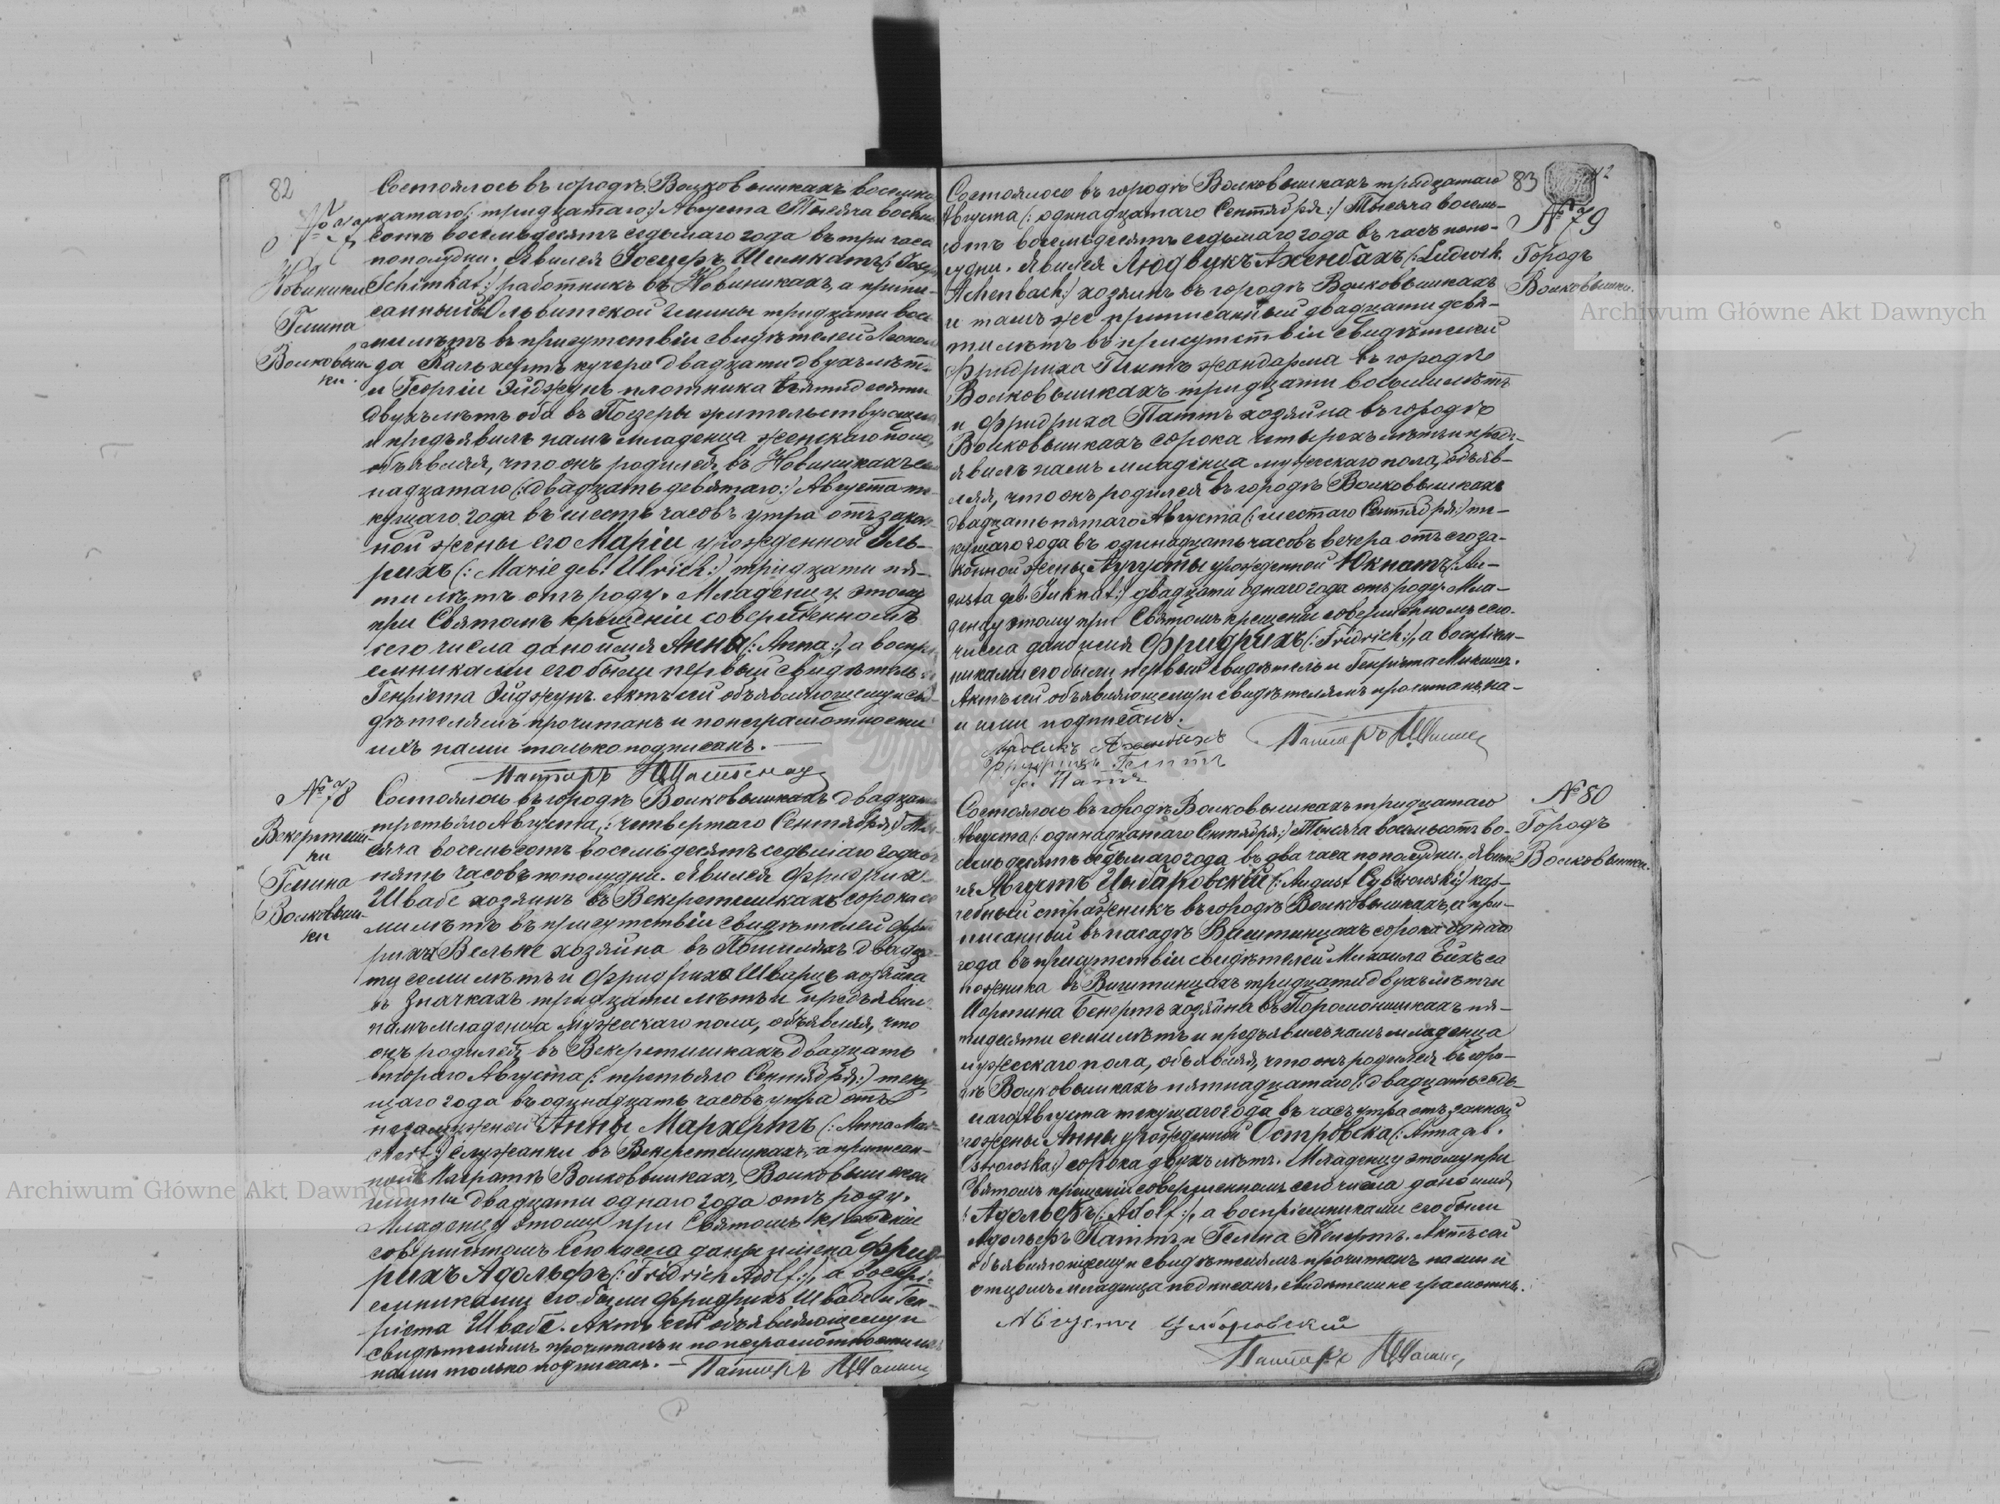 82
№ 77
Новиники
Гмина
Волковыш-
ки.
Состоялось въ городѣ Волковышкахъ восемна-
дцатаго (: тридцатаго :) Августа Тысяча восемь
сотъ восемьдесятъ седьмаго года въ три часа
пополудни. Явился Шимкатъ
Schimkat :) работникъ въ Новиникахъ, а припи-
санный Ольвитской гмины тридцати вось
ми лѣтъ въ присутствіи свидѣтелей
да кучера двадцати двухъ лѣтъ
и Георгія плотника пятидесяти
двухъ лѣтъ оба въ жительствующихъ
и предъявилъ намъ младенца женскаго пола,
объявляя, что онъ родился въ Новиникахъ сем
надцатаго (: двадцать девятаго :) Августа те-
кущаго года въ шесть часовъ утра отъ закон-
ной жены его Маріи урожденной Уль-
рихъ (: Marie geb. Ulrich :) тридцати пя-
ти лѣтъ отъ роду. Младенцу этому
при Святомъ крещеніи совершенномъ
сего числа дано имя Анна (: Anna :), а воспрі-
емниками его были первый свидѣтель и
Генріета Актъ сей объявляющему и сви-
дѣтелямъ прочитанъ и по неграмотности
ихъ нами только подписанъ. —
Пасторъ
№ 78
Векеротишки
Гмина
Волковыш-
ки
Состоялось въ городѣ Волковышкахъ двадцать
третьяго Августа (: четвертаго Сентября :) Ты-
сяча восемьсотъ восемьдесятъ седьмаго года въ
пять часовъ пополудни. Явился Фридрихъ
Швабе хозяинъ въ сорока се
ми лѣтъ въ присутствіи свидѣтелей Фрид
риха Вельке хозяина въ двадца-
ти семи лѣтъ и Фридриха Шварцъ хозяина
въ Значкахъ тридцати лѣтъ и предъявилъ
намъ младенца мужескаго пола, объявляя, что
онъ родился въ двадцать
втораго Августа (: третьяго Сентября :) теку
щаго года въ одинадцать часовъ утра отъ
незамужней Анны Мархертъ (: Anna Mar-
chert :) служанки въ а приписан-
ной Волковышкахъ, Волковышской
гмины двадцати однаго года отъ роду.
Младенцу этому при Святомъ крещеніи
совершенномъ сего числа даны имена Фрид-
рихъ Адольфъ (: Fridrich Adolf :), а воспрі-
емниками его были Фридрихъ Швабе и Ген-
ріета Швабе. Актъ сей объявляющему и
свидѣтелямъ прочитанъ и по неграмотности ихъ
нами только подписанъ. — Пасторъ
83
№ 79
Городъ
Волковышки.
Состоялось въ городѣ Волковышкахъ тридцатаго
Августа (: одинадцатаго Сентября :) Тысяча восемь-
сотъ восемьдесятъ седьмаго года въ часъ попо-
лудни. Явился Людвикъ Ахенбахъ (: Ludwik
Achenbach :) хозяинъ въ городѣ Волковышкахъ
и тамъ же приписанный двадцати девя-
ти лѣтъ въ присутствіи свидѣтелей
Фридриха жандарма въ городѣ
Волковышкахъ тридцати восьми лѣтъ
и Фридриха Паттъ хозяина въ городѣ
Волковышкахъ сорока четырехъ лѣтъ и предъ-
явилъ намъ младенца мужескаго пола, объяв-
ляя, что онъ родился въ городѣ Волковышкахъ
двадцать пятаго Августа (: шестаго Сентября :) те-
кущаго года въ одинадцать часовъ вечера отъ его за-
конной жены Аугусты урожденной Юкнатъ (: Au-
gusta geb. Juknat :) двадцати однаго года отъ роду. Мла-
денцу этому при Святомъ крещеніи совершенномъ сего
числа дано имя Фридрихъ (: Fridrich :), а воспріем-
никами его были первый свидѣтель и Генріета
Актъ сей объявляющему и свидѣтелямъ прочитанъ, на-
ми и ими подписанъ.
Людвикъ Ахенбахъ
Фридрихъ
Ф. Паттъ
Пасторъ
№ 80
Городъ
Волковышки.
Состоялось въ городѣ Волковышкахъ тридцатаго
Августа (: одинадцатаго Сентября :) Тысяча восемьсотъ во-
семьдесятъ седьмаго года въ два часа пополудни. Явил-
ся Августъ Цыбаровскій (: August Cybrowski :) кор-
чебный стражникъ въ городѣ Волковышкахъ, а при-
писанный въ посадѣ Виштинцахъ сорока однаго
года въ присутствіи свидѣтелей Михаила са
пожника въ Виштинцахъ тридцати двухъ лѣтъ и
Мартина хозяина въ пя-
тидесяти семи лѣтъ и предъявилъ намъ младенца
мужескаго пола, объявляя, что онъ родился въ горо-
дѣ Волковышкахъ пятнадцатаго (: двадцать седь-
маго :) Августа текущаго года въ часъ утра отъ законной
его жены Анны урожденной Островска (: Anna geb.
Ostrowska :) сорока двухъ лѣтъ. Младенцу этому при
Святомъ крещеніи совершенномъ сего числа дано имя
Адольфъ (: Adolf :), а воспріемниками его были
Адольфъ Паттъ и Актъ сей
объявляющему и свидѣтелямъ прочитанъ нами и
отцомъ младенца подписанъ, свидѣтели не грамотны.
Августъ Цибаровскій
Пасторъ
Archiwum Główne Akt Dawnych
Archiwum Główne Akt Dawnych